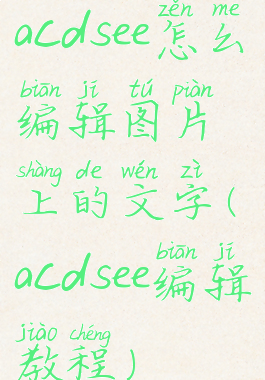 zěn me
acdsee怎么
biān jí tú piàn
编辑图片
shàng de wén zì
上的文字(
biān jí
acdsee编辑
jiào chéng
教程)